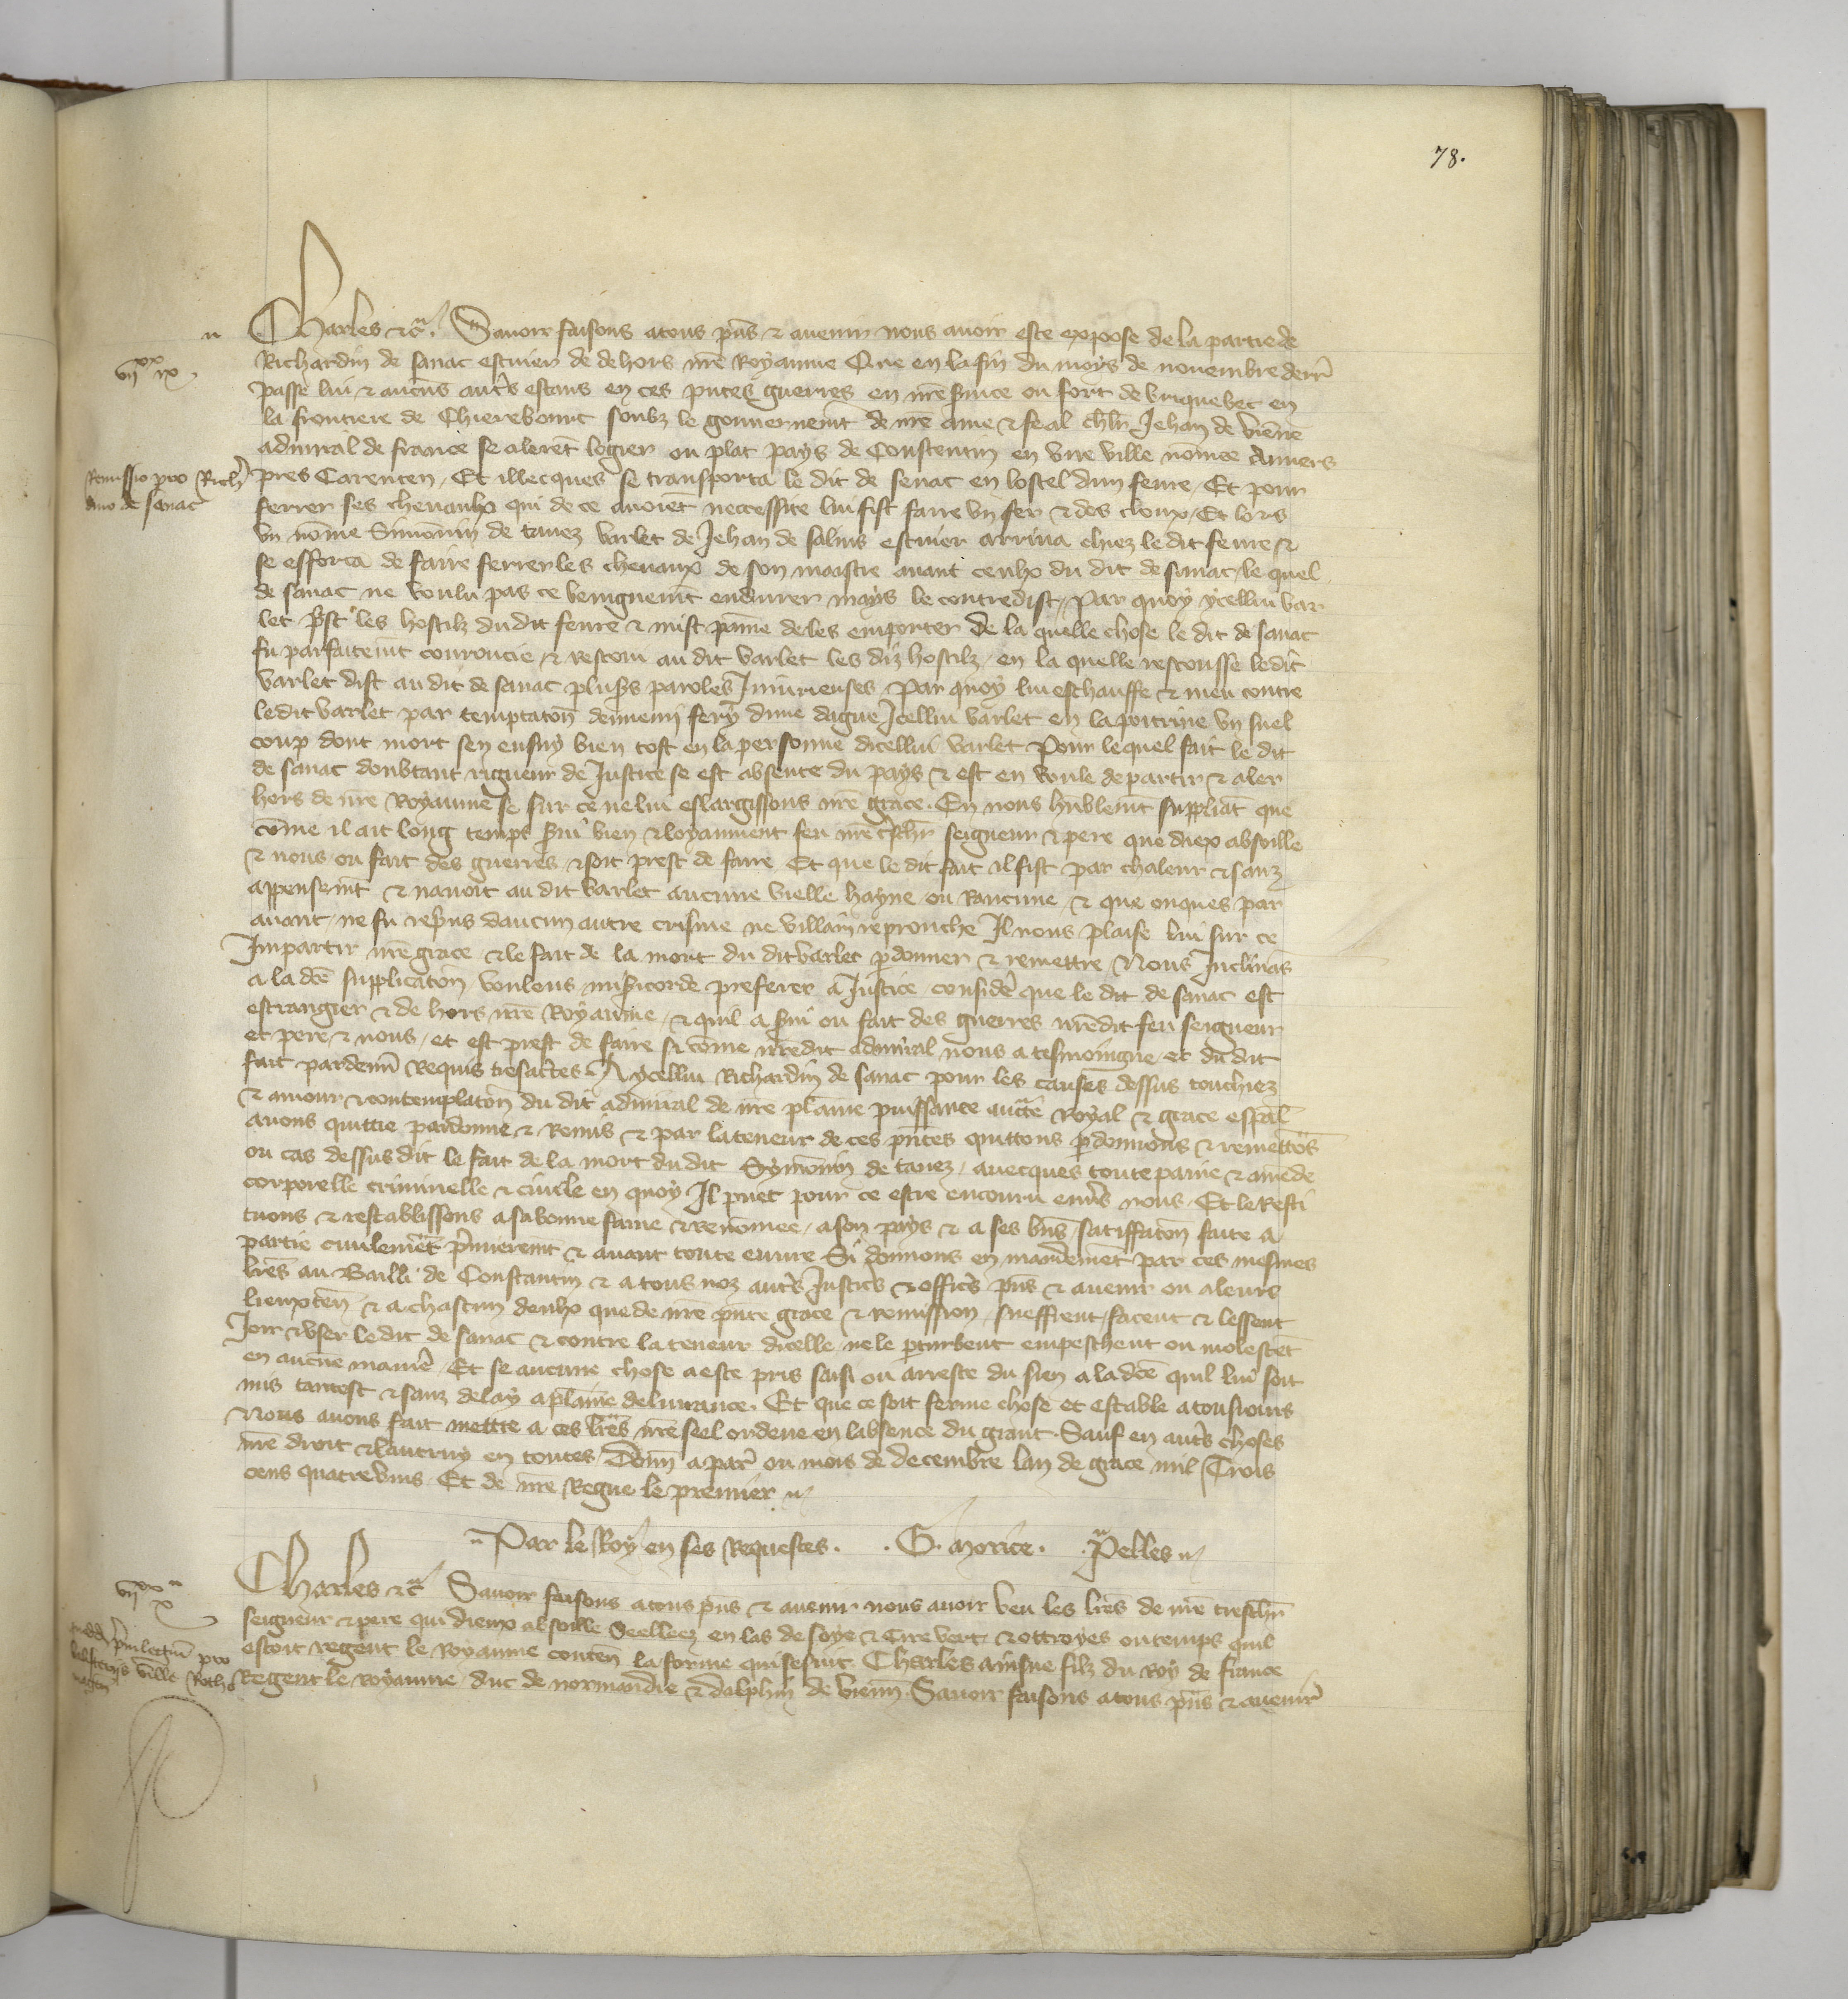 78.
Charles etc. Savoir faisons a tous pñs et avenir nous avoir este expose de la partie de
Richardin de sanac escuier de dehors nre Royaume Que en la fin du moys de novembre derr
vii xx ix.
passe lui et aucuns autrs estans en ces pntes guerres en nre svice ou fort de briquebec en
la frontiere de Chierebourt soubz le gouvernemt de nre ame et feal chlr Jehan de vienne
admiral de france se alerēt logier ou plat pays de Constentin en une ville nōmee Auvers
Remissio pro Rich
ardino de sanac
pres Carenten, Et illecques se transporta le dit de senac en lostel dun fevre, Et pour
ferrer ses chevaulx qui de ce avoiēt neccessite lui fist faire un fer et des cloux, Et lors
un nōme Simōnin de tavez varlet de Jehan de salins escuier arriva chiez le dit fevre et
se efforca de faire ferrer les chevaux de son maistre avant ceulx du dit de sanac, le quel
de sanac ne voulu pas ce benignemt endurer mays le contredist, Par quoy ycellui var
let pst les hostilz du dit fevre et mist paīne de les emporter De la quelle chose le dit de sanac
fu parfaitemt courroucie, et rescoui au dit varlet les diz hostilz, en la quelle rescousse ledit
varlet dist au dit de sanac plusrs paroles Injurieuses, Par quoy lui eschauffe et meu contre
ledit varlet par temptatōn dennemi fery dune dague Jcellui varlet en la poitrine un suel
coup dont mort sen ensuy bien tost en la personne dicellui varlet Pour lequel fait le dit
de sanac doubtant rigueur de Justice se est absente du pays et est en voule de partir et aler
hors de nre Royaume se sur ce ne lui eslargissons nre grace. En nous hūblemt suppliāt que
cōme il ait long temps svi bien et loyaument feu nre tschr seigneur et pere que diex absoille
et nous ou fait des guerres, et soit prest de faire Et que le dit fait il fist par chaleur et sanz
appensemt et navoit au dit varlet aucune vielle hayne ou Rancune, et que onques par
avant ne fu repris daucun autre crisme ne villain reprouche Il nous plaise lui sur ce
Impartir nre grace et le fait de la mort du dit varlet pdonner et remettre Nous Inclinās
a la dce supplicatōn voulons misicorde preferer a Justice considere que le dit de sanac est
estrangier et de hors nre Royaume, et quil a svi ou fait des guerres nredit feu seigneur
et pere et nous, et est prest de faire si cōme nredit admiral nous a tesmoingne, et du dit
fait pardevn Requis tresactes A ycellui Richardin de sanac pour les causes dessus touchiez
et amour et contemplatōn du dit admiral de nre plaine puissance aucte royal et grace espāl
avons quittie pardonne et Remis et par la teneur de ces pntes quittons pdonnons et remettōs
ou cas dessusdit le fait de la mort du dit Symōnin de tavez, avecques toute paine et amēde
corporelle criminelle et civile en quoy Il puet pour ce estre encouru envs nous, Et le Resti
tuons et restablissons a sa bonne fame et renōmee, a son pays et a ses bns, satiffatōn faite a
partie civilemēt pmieremt et avant toute euvre Si donnons en mandemēt par ces mesmes
lres au Bailli de Constantin et a tous noz autrs Justics et offics pns et avenir ou a leurs
lieuxten et a chascun deulx que de nre pnte grace et remission, sueffrent facent et lessent
Joir et user ledit de sanac et contre la teneur dicelle ne le pturbent empeschent ou molestēt
en aucune manie, Et se aucune chose a este pris saisi ou arreste du sien a la dce quil lui soit
mis tantost et sanz delay a plaine delivrance. Et que ce soit ferme chose et estable a tousiours
Nous avons fait mettre a ces lres nre seel ordene en labsence du grant. Sauf en autrs choses
nre droit et lautruy en toutes, Donn a pars ou mois de decembre lan de grace mil Trois
cens quatrevins, Et de nre Regne le premier
Par le Roy en ses Requestes. . G. morice. . Pelles
vii xx x
Charles etc Savoir faisons a tous pns et avenir nous avoir veu les lres de nre treschr
seigneur et pere qui dieux absoille Seelleez en las de soye et Cire vert, et ottroyes ou temps quil
estoit regent le Royaume conten la forme qui sesuit, Charles ainsne filz du Roy de france
Regent le royaume, duc de normandie et dalphin de vienn, Savoir faisons a tous pns et avenir